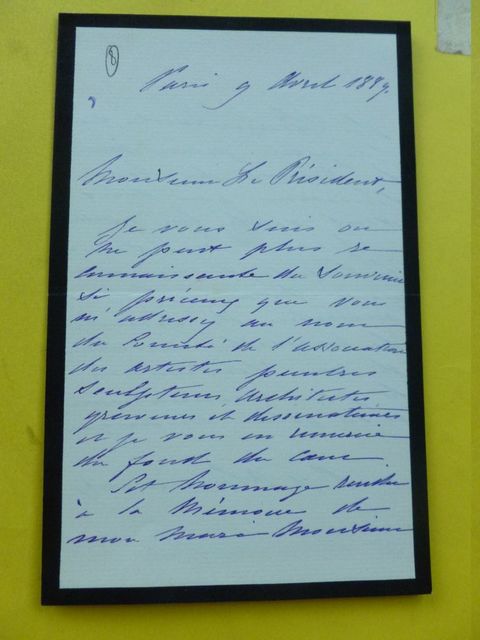 8
Paris 9 Avril 1889.
Monsieur Le Président,
Je vous suis on
ne peut plus re
connaissante du Souvenir
si précieux que vous
m'adressez au nom
du Comité de l'association
des artistes peintres
sculpteurs, architectes
graveurs et dessinateurs
et je vous en remercie
du fond du cœur
Cet hommage rendu
à la Mémoire de
mon Mari Monsieur